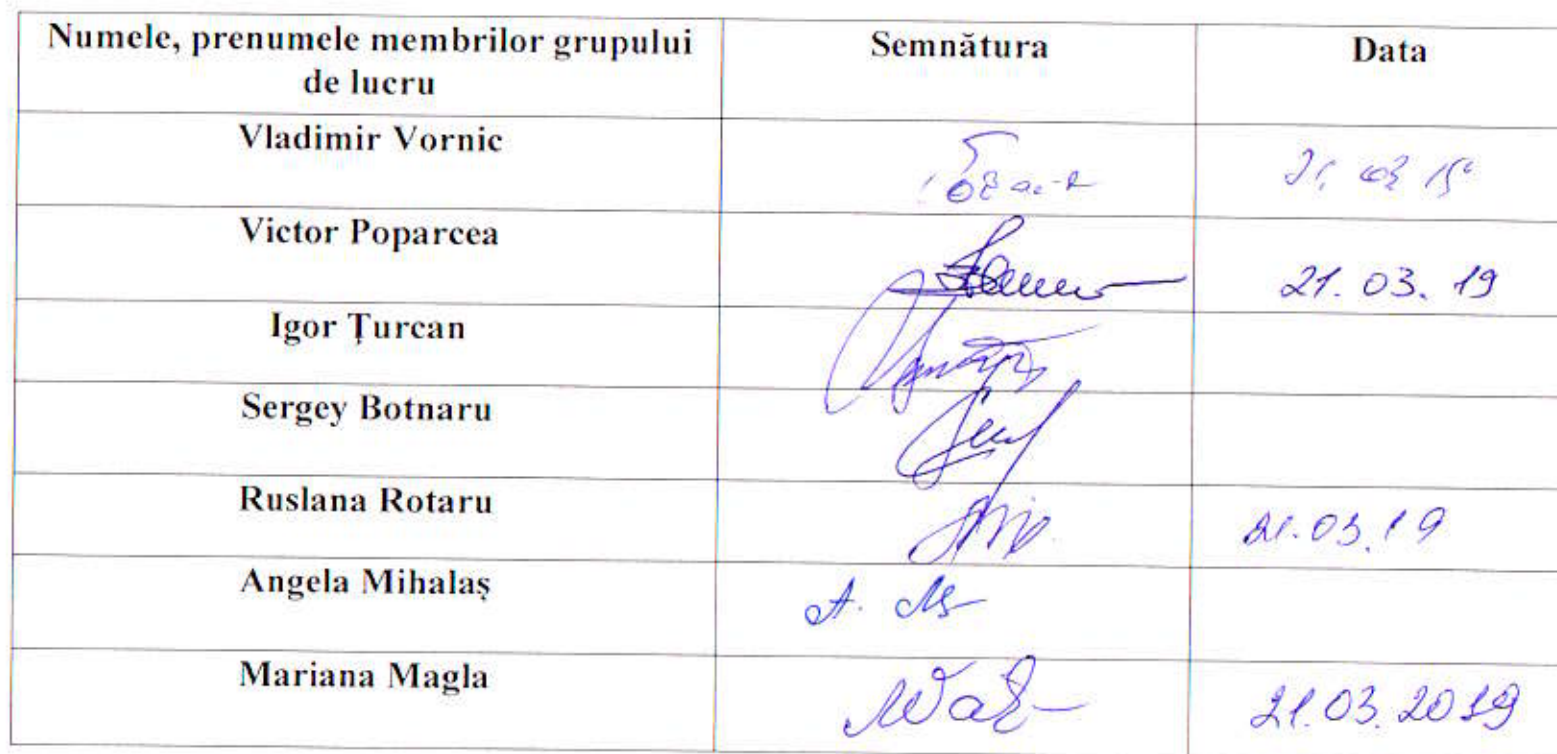 Numele, prenumele membrilor grupului Semnătura Data
de lucru
Vladimir Vornic
Victor Poparcea 21.03.19
Igor Țurcan
Sergey Botnaru
Ruslana Rotaru 21.03.19
Angela Mihalaș
Mariana Magla 21.03.2019